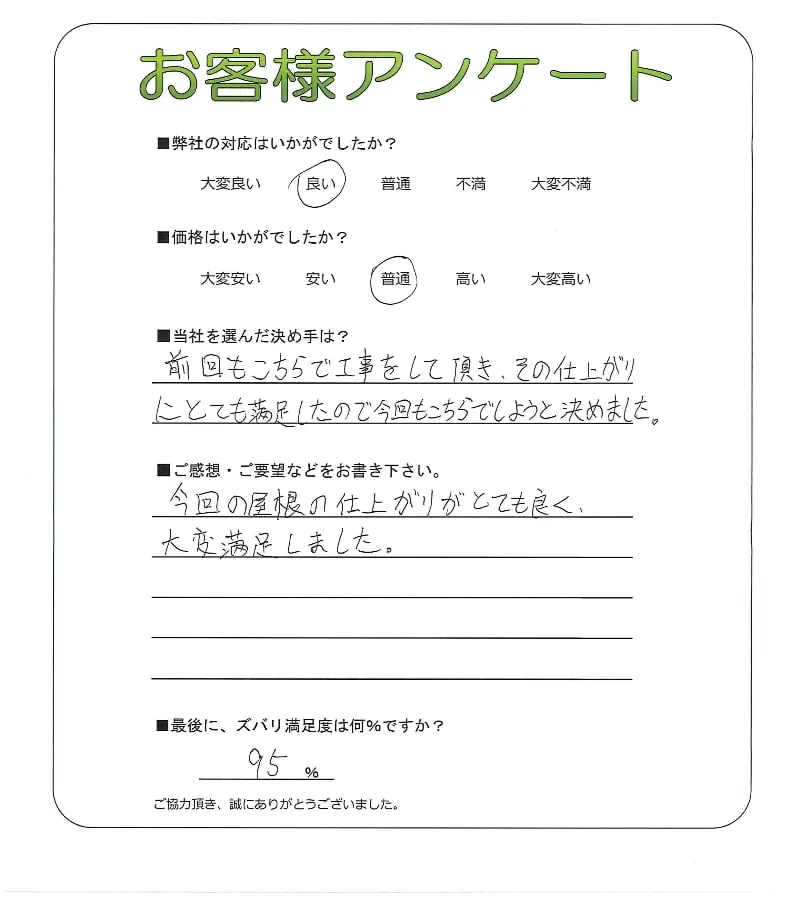 お客様アンケート
■弊社の対応はいかがでしたか？
大変良い 良い 普通 不満 大変不満
■価格はいかがでしたか？
大変安い 安い 普通 高い 大変高い
■当社を選んだ決め手は？
前回もこちらで工事をして頂き、その仕上がり
にとても満足したので今回もこちらでしようと決めました。
■ご感想・ご要望などをお書き下さい。
今回の屋根の仕上がりがとても良く、
大変満足しました。
■最後に、ズバリ満足度は何%ですか？
95 %
ご協力頂き、誠にありがとうございました。